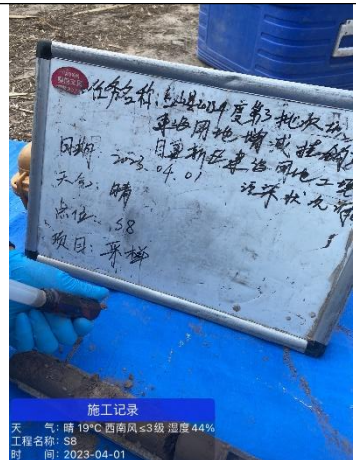 任务名称:山县2024度第3批次城
建设用地增减挂钩
目建新区建设用地土壤
污染状况调
日期 2023.04.01
天气:晴
点位:S8
项目:采样
施工记录
天 气:晴 19℃ 西南风≤3级 湿度44%
工程名称:S8
时 间:2023-04-01